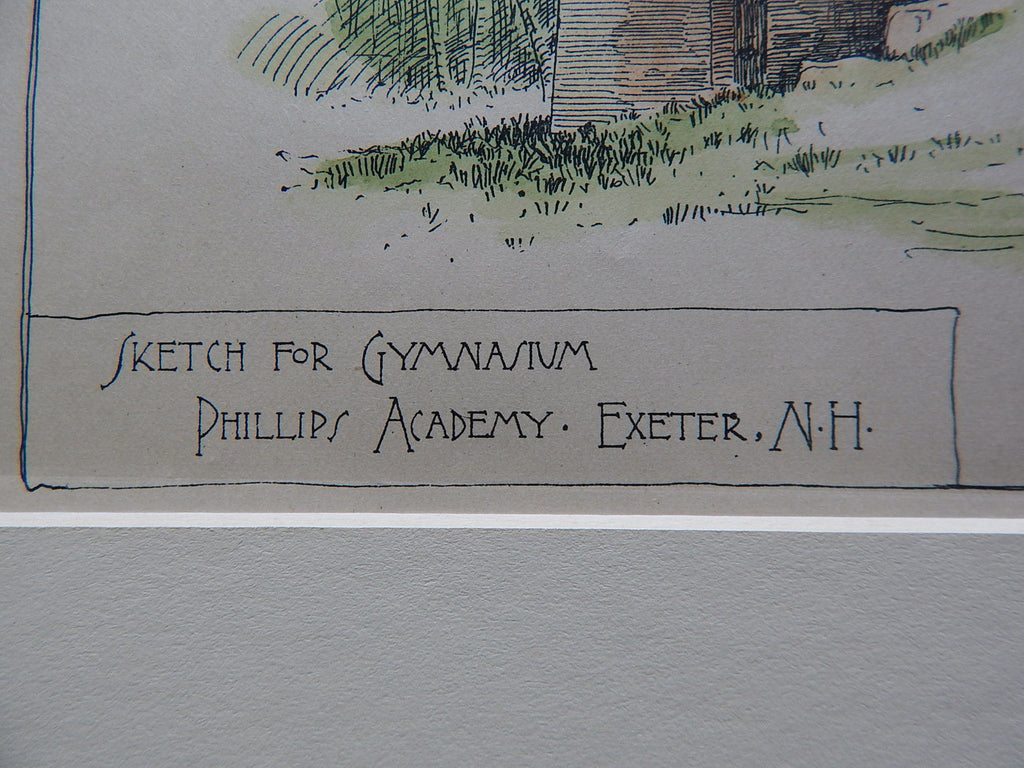 Sketch for Gymnasium
Phillips Academy. Exeter, N.H.